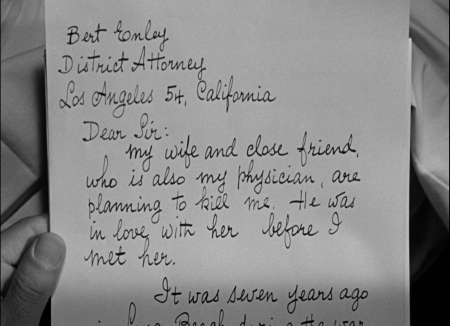 Bert Enley
District Attorney
Los Angeles 54, California
Dear Sir:
My wife and close friend,
who is also my physician, are
planning to kill me. He was
in love with her before I
met her.
It was seven years ago
in Long Beach during the war